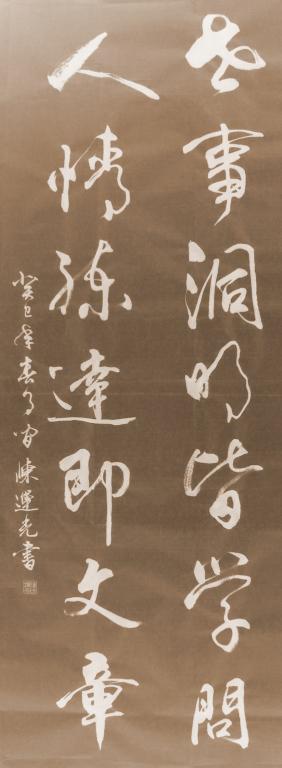 世事洞明皆学問
人情練達即文章
癸巳年春月宙陳運光書